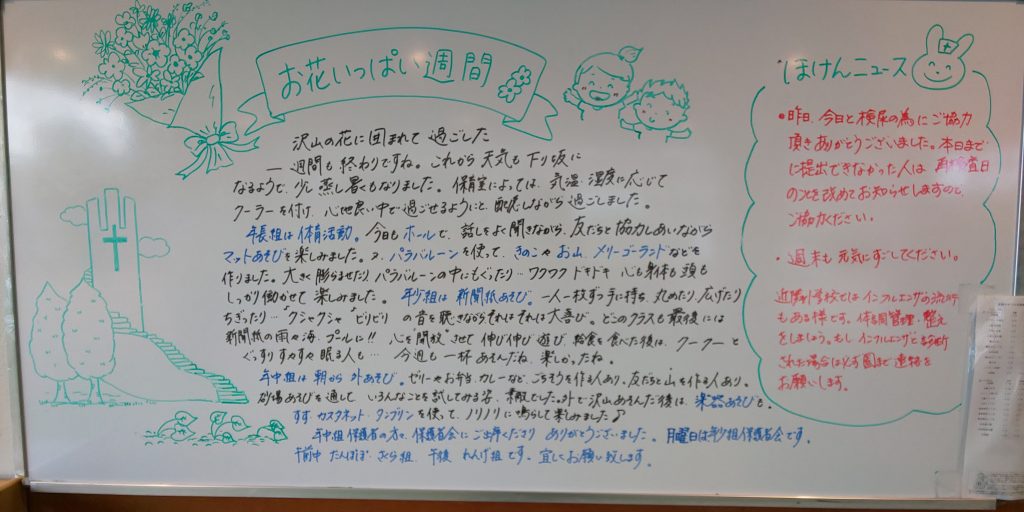 お花いっぱい週間
沢山の花に囲まれて過ごした
一週間も終わりですね。これから天気も下り坂に
なるようで、少し蒸し暑くもなりました。保育室によっては、気温・湿度に応じて
クーラーを付け、心地良い中で過ごせるようにと、配慮しながら過ごしました。
年長組は体育活動。今日もホールで、話しをよく聞きながら、友だちと協力しあいながら
マットあそびを楽しみました。又、パラバルーンを使って、きのこやお山、メリーゴーランドなどを
作りました。大きく膨らませたり、パラバルーンの中にもぐったり…ワクワクドキドキ 心も身体も頭も
しっかり働かせて楽しみました。年少組は新聞紙あそび。一人一枚ずつ手に持ち、丸めたり、広げたり
ちぎったり…"クシャクシャ" ビリビリ の音を聴きながらそれぞれ大喜び。どのクラスも最後には
新聞紙の雨や海、プールに!! 心を"開放"させて伸び伸び遊び、給食を食べた後は、クークーと
ぐっすりすやすや眠る人も… 今週も一杯あそんだね。楽しかったね。
年中組は朝から外あそび。ゼリーやお弁当、カレーなど、ごちそうを作る人あり、友だちと山を作る人あり。
砂場あそびを通して、いろんなことを試してみる姿、素敵でした。外で沢山あそんだ後は、楽器あそびも。
すず、カスタネット、タンブリンを使って、ノリノリに鳴らして楽しみました♪
年中組保護者の方々、保護者会にご出席くださり ありがとうございました。月曜日は年少組保護者会です。
午前中 たんぽぽ・さくら組、午後 れんげ組です。宜しくお願い致します。
ほけんニュース
・昨日、今日と検尿の為にご協力
頂きありがとうございました。本日まで
に提出できなかった人は、再検査日
のことを改めてお知らせしますので、
ご協力ください。
・週末も元気にすごしてください。
近隣小学校ではインフルエンザの流行
もある様です。体調管理・整え
をしましょう。もしインフルエンザと診断
された場合は必ず園まで連絡を
お願いします。